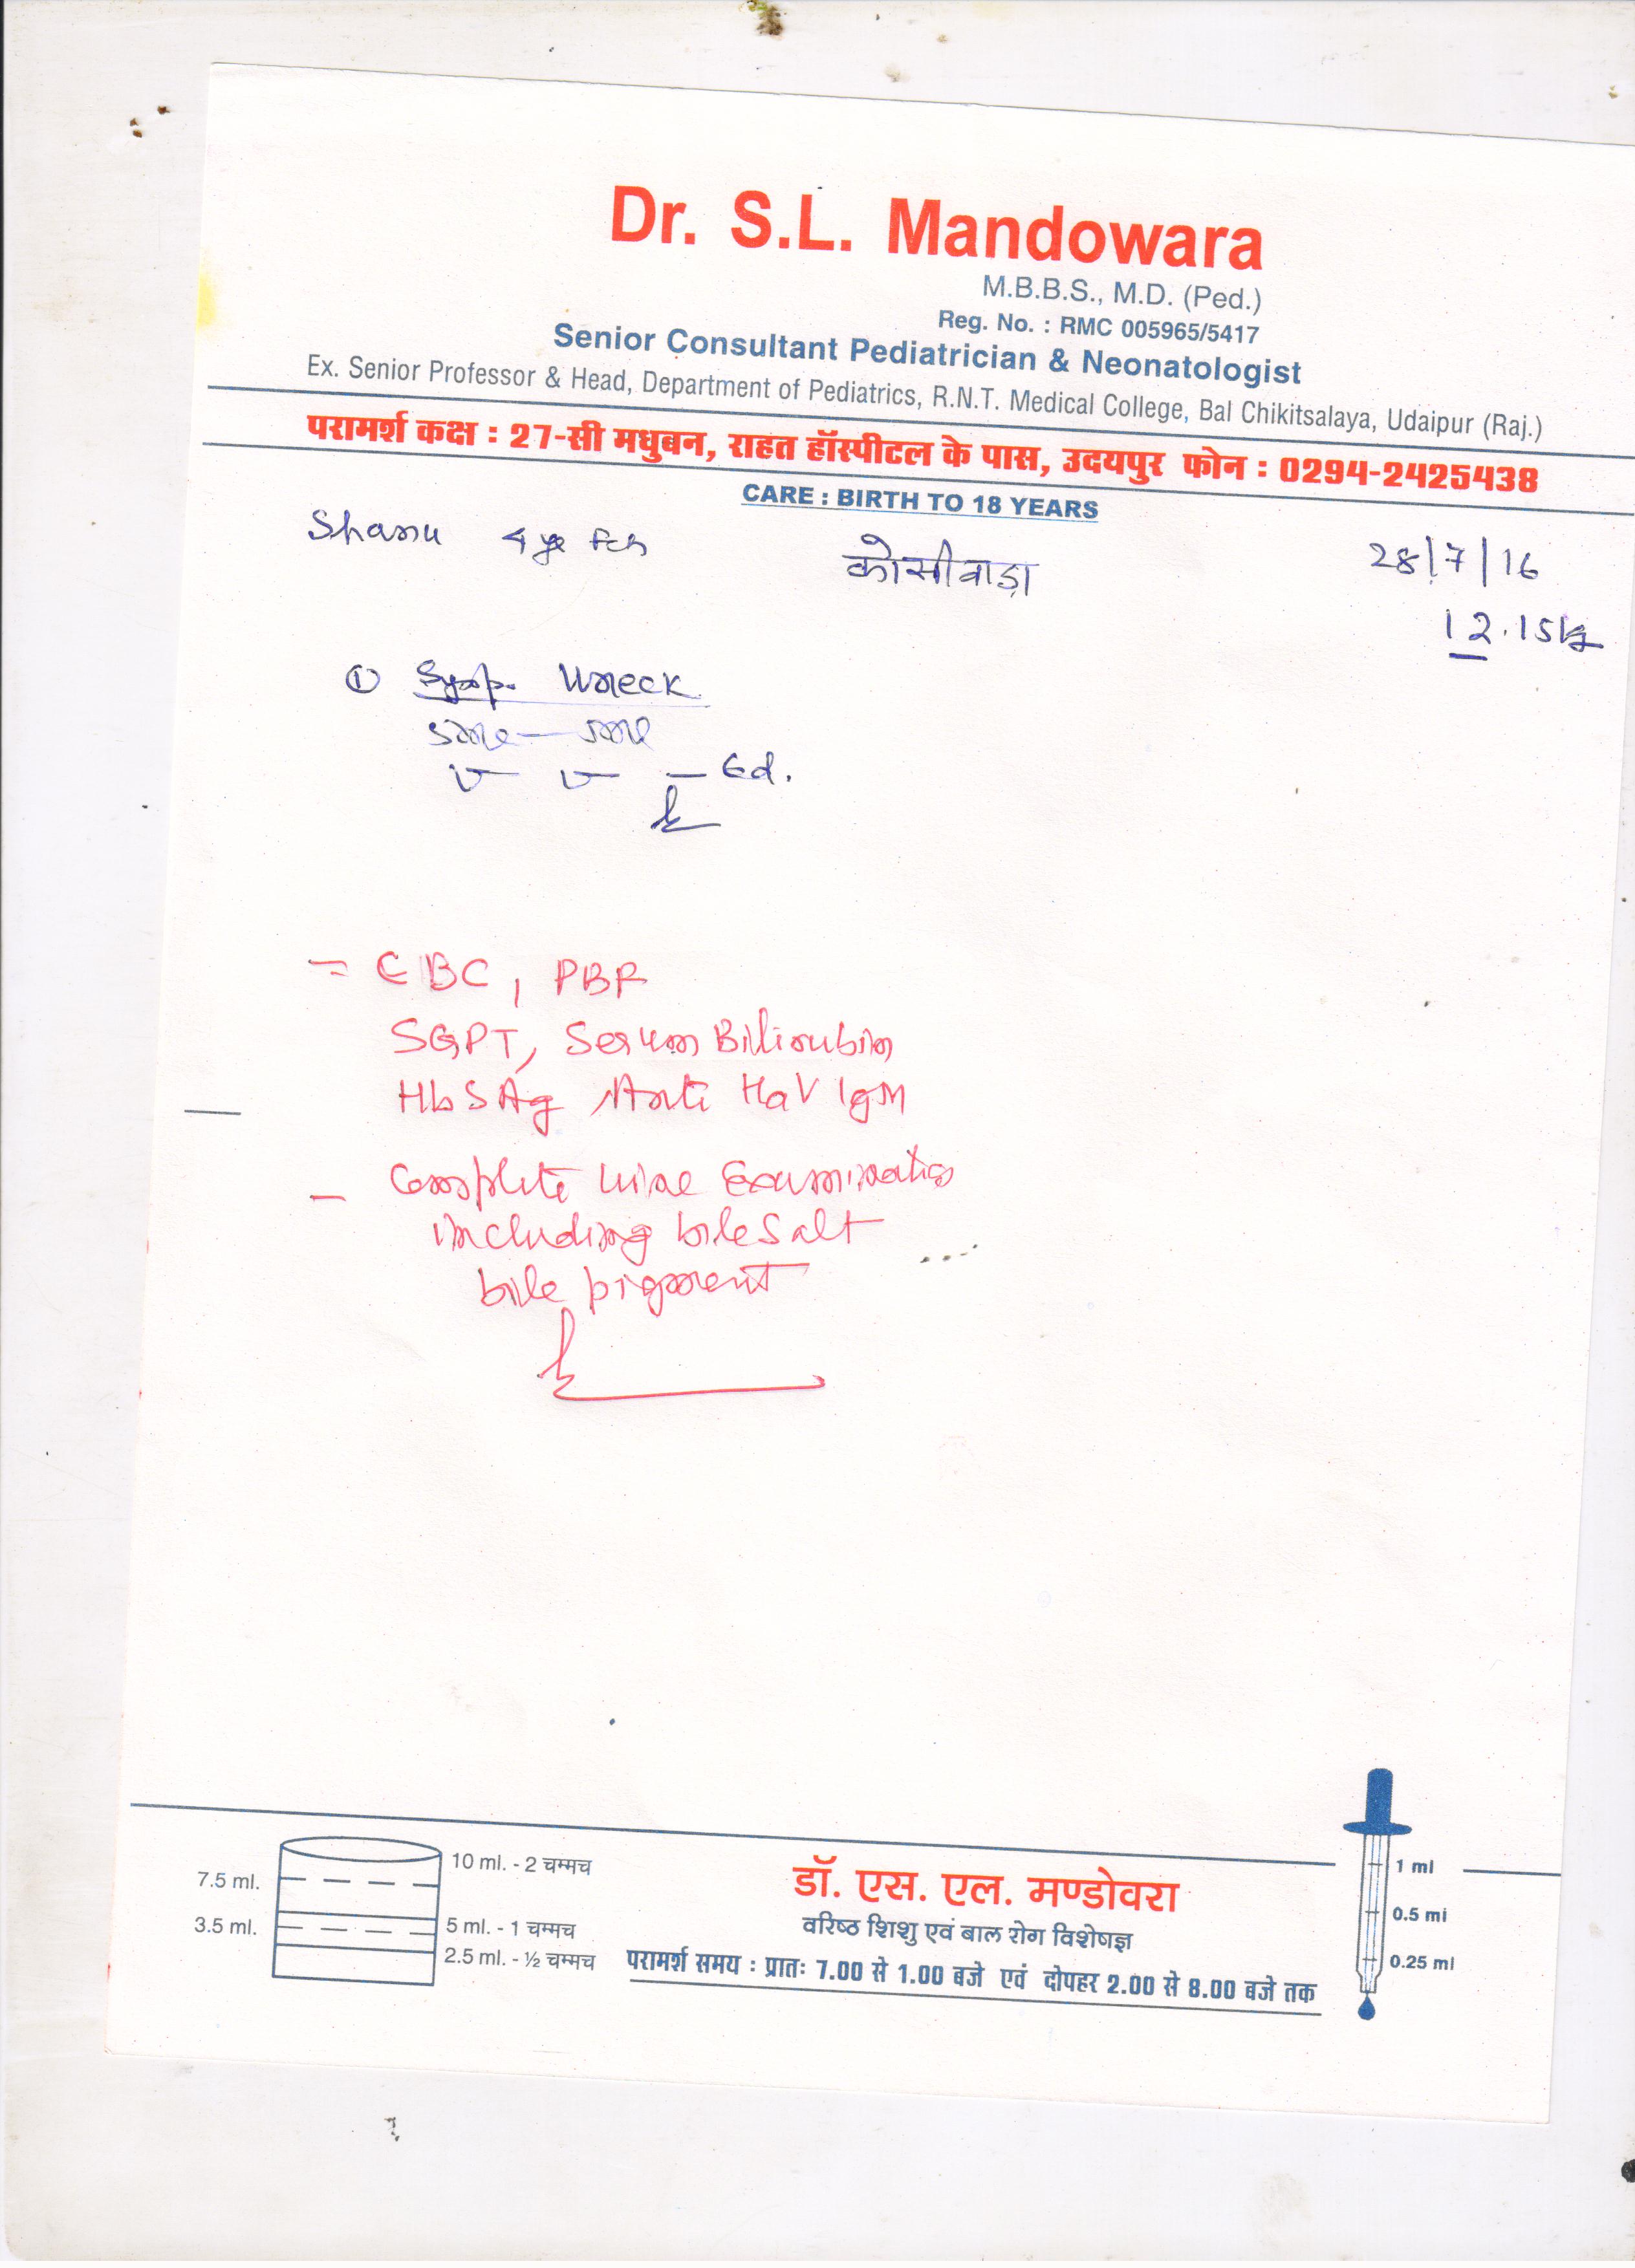 Dr. S.L. Mandowara
M.B.B.S., M.D. (Ped.)
Reg. No. : RMC 005965/5417
Senior Consultant Pediatrician & Neonatologist
Ex. Senior Professor & Head, Department of Pediatrics, R.N.T. Medical College, Bal Chikitsalaya, Udaipur (Raj.)
परामर्श कक्ष : 27-सी मधुबन, राहत हॉस्पीटल के पास, उदयपुर फोन : 0294-2425438
CARE : BIRTH TO 18 YEARS
Shanu 4 yr Fch कोसीवाड़ा 28/7/16
12.15kg
① Syp. Wreck
5ml — 5ml
CBC, PBF
SGPT, Serum Bilirubin
HbSAg Anti HaV IgM
— Complete urine Examination
including bile salt
bile pigment
10 ml. - 2 चम्मच
7.5 ml.
3.5 ml.
5 ml. - 1 चम्मच
2.5 ml. - ½ चम्मच
डॉ. एस. एल. मण्डोवरा
वरिष्ठ शिशु एवं बाल रोग विशेषज्ञ
परामर्श समय : प्रातः 7.00 से 1.00 बजे एवं दोपहर 2.00 से 8.00 बजे तक
1 ml
0.5 ml
0.25 ml